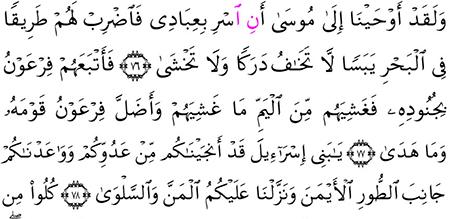 وَلَقَدْ أَوْحَيْنَا إِلَىٰ مُوسَىٰ أَنِ ٱسْرِ بِعِبَادِى فَاضْرِبْ لَهُمْ طَرِيقًا
فِى الْبَحْرِ يَبَسًا لَّا تَخَـٰفُ دَرَكًا وَلَا تَخْشَىٰ ﴿٧٦﴾ فَأَتْبَعَهُمْ فِرْعَوْنُ
بِجُنُودِهِۦ فَغَشِيَهُم مِّنَ الْيَمِّ مَا غَشِيَهُمْ وَأَضَلَّ فِرْعَوْنُ قَوْمَهُۥ
وَمَا هَدَىٰ ﴿٧٧﴾ يَـٰبَنِى إِسْرَٰٓءِيلَ قَدْ أَنجَيْنَـٰكُم مِّنْ عَدُوِّكُمْ وَوَاعَدْنَـٰكُمْ
جَانِبَ الطُّورِ الْأَيْمَنَ وَنَزَّلْنَا عَلَيْكُمُ الْمَنَّ وَالسَّلْوَىٰ ﴿٧٨﴾ كُلُوا۟ مِن